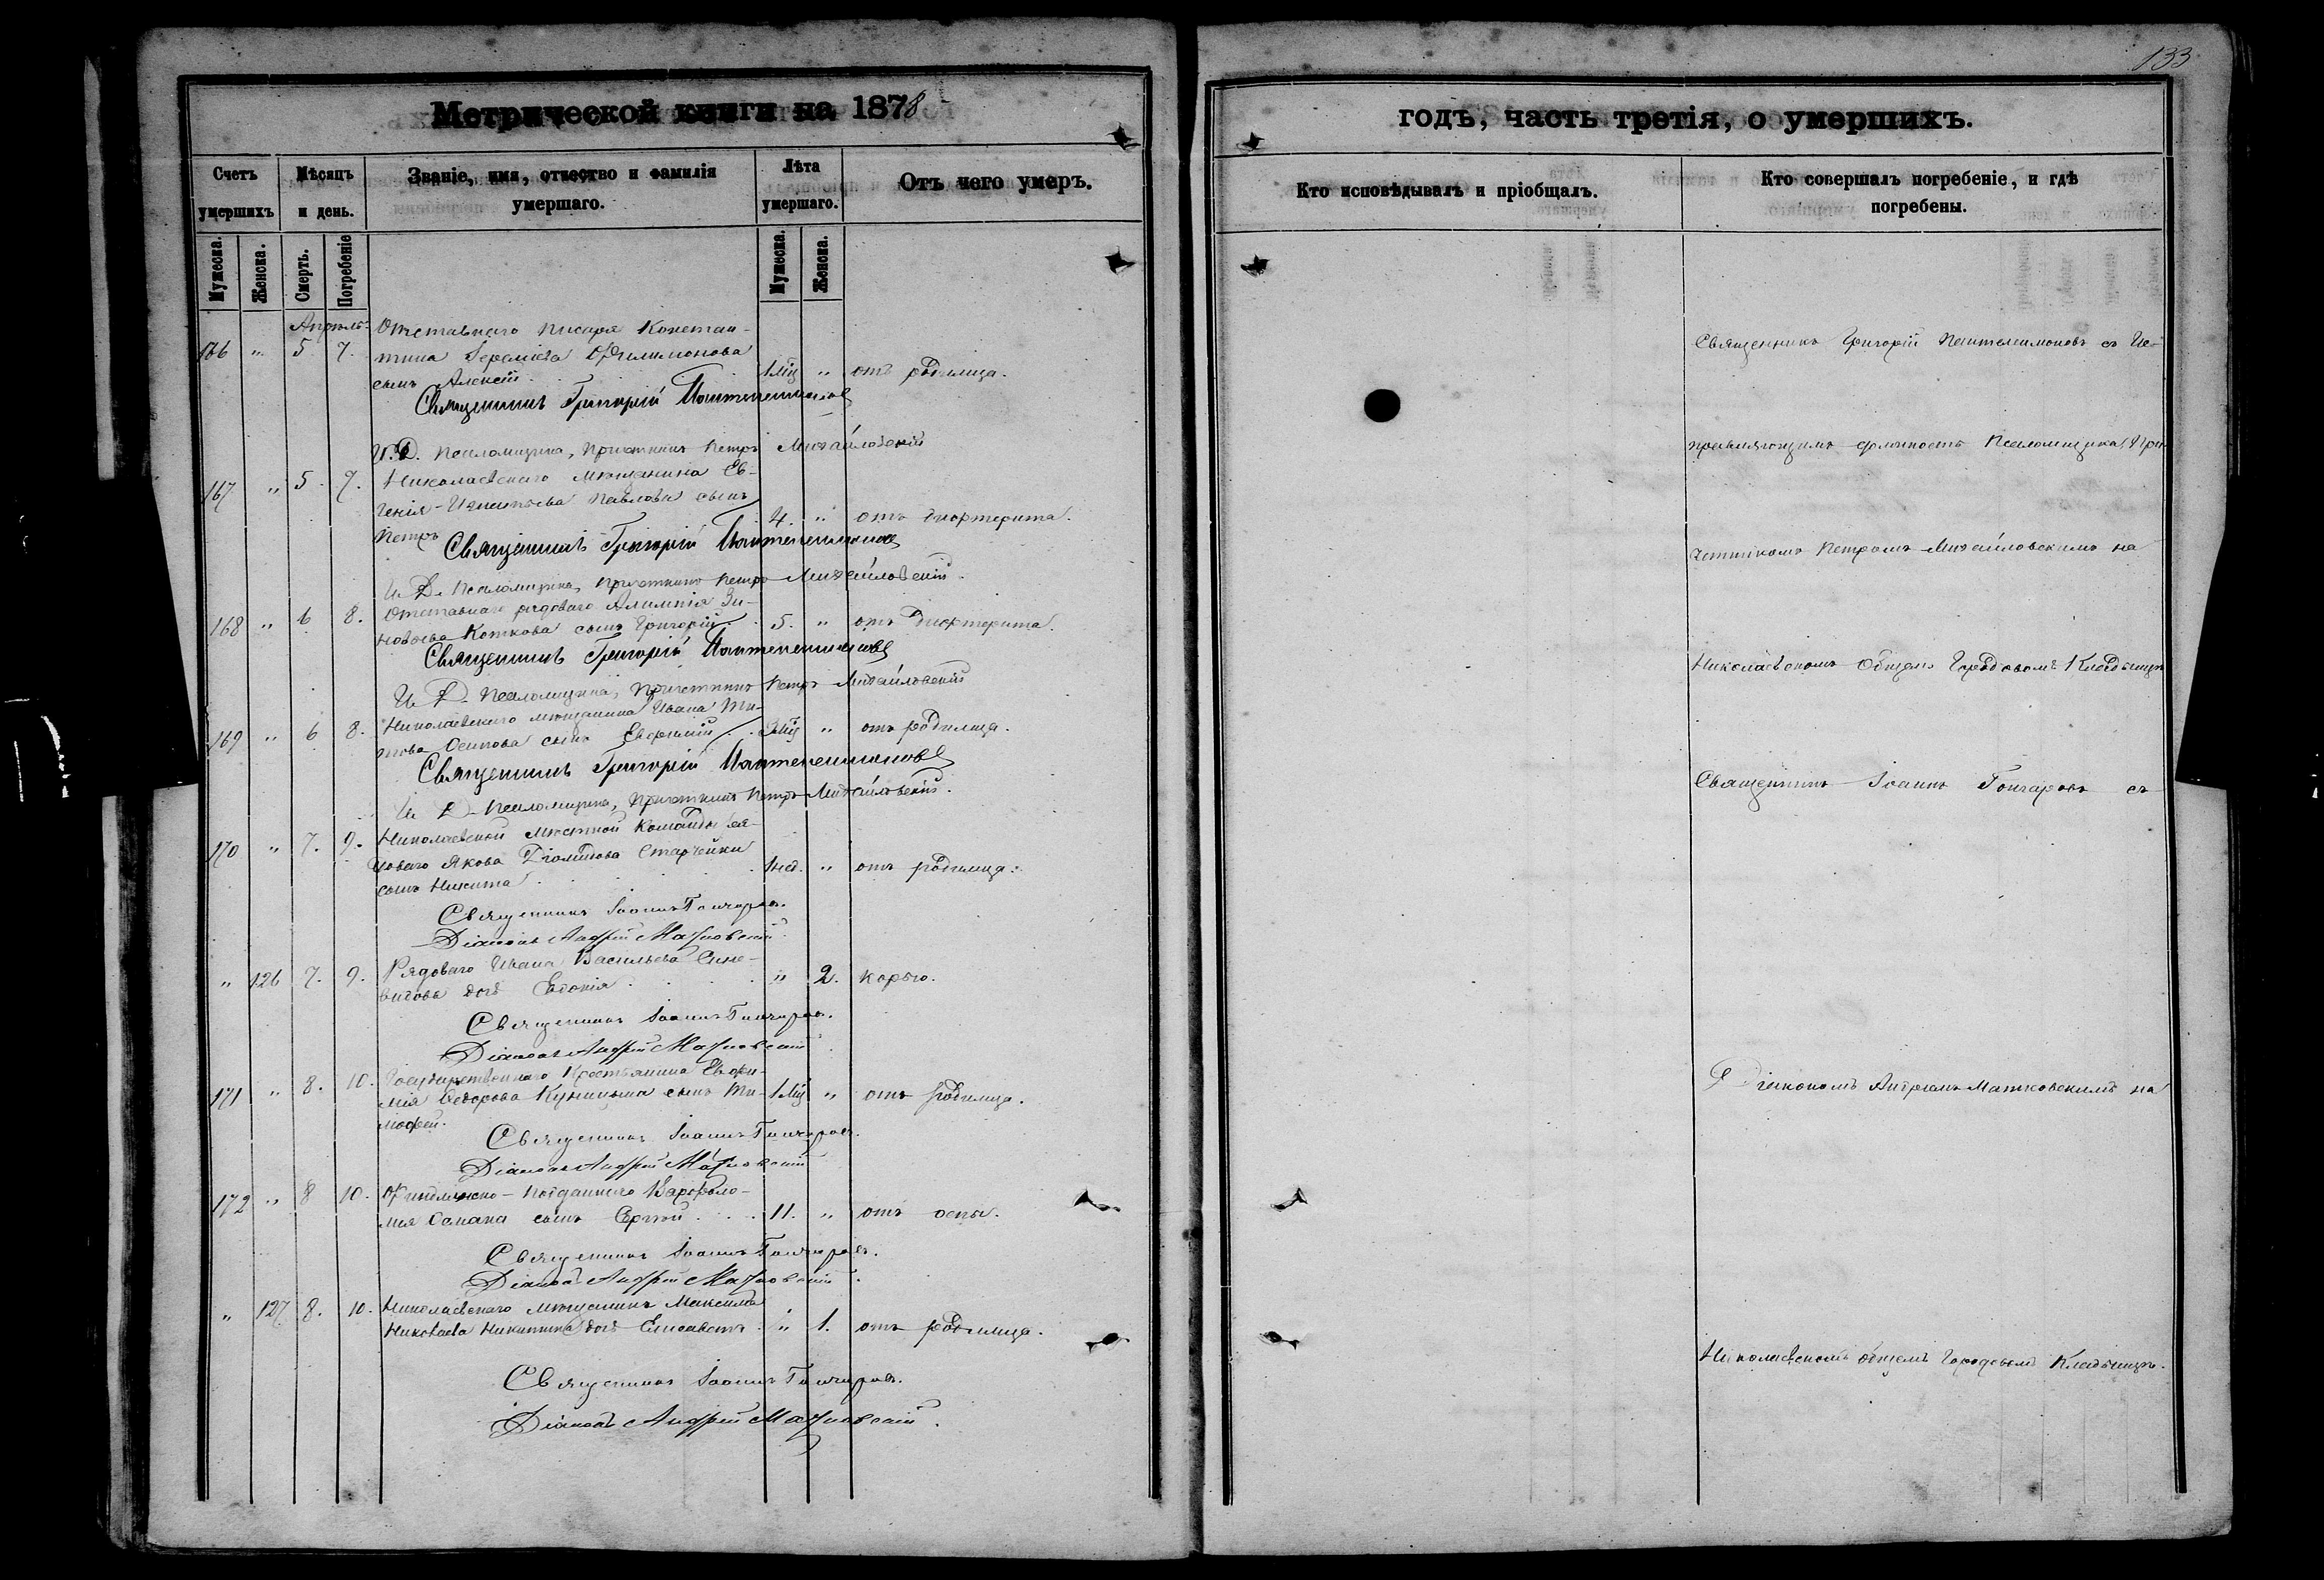 133
Метрической книги на 1878
годъ, часть третія, о умершихъ.
Счетъ умершихъ
Мѣсяцъ и день.
Званіе, имя, отчество и фамилія умершаго.
Лѣта умершаго.
Отъ чего умеръ.
Кто исповѣдывалъ и пріобщалъ.
Кто совершалъ погребеніе, и гдѣ погребены.
Мужеска.
Женска.
Смерть.
Погребеніе
Мужеска.
Женска.
Апрѣль
Отставнаго писаря Констан-
166 " 5 7. тина Іереміева Филимонова
сынъ Алексѣй. 1 мц " отъ родимца.
Священникъ Григорій Пантелеимоновъ
И. Д. Псаломщика, Причетникъ Петръ Михайловскій
167 " 5. 7. Николаевскаго мѣщанина Ев-
генія Игнатьева Павлова сынъ
Петръ 4. " отъ дифтерита.
Священникъ Григорій Пантелеимоновъ
И. Д. Псаломщика, Причетникъ Петръ Михайловскій.
Отставнаго рядоваго Алимпія Зи-
168 " 6 8. новьева Коткова сынъ Григорій 5. " отъ дифтерита.
Священникъ Григорій Пантелеимоновъ
И. Д. Псаломщика, Причетникъ Петръ Михайловскій
Николаевскаго мѣщанина Ивана Ти-
169 " 6 8. това Осипова сынъ Евфимій " отъ родимца.
Священникъ Григорій Пантелеимоновъ
И. Д. Псаломщика, Причетникъ Петръ Михайловскій.
Николаевской мѣстной Команды ря-
170 " 7. 9. доваго Якова Діомидова Старчейки
сынъ Никита 1 нед. " отъ родимца.
Священникъ Іоаннъ Гончаровъ.
Діаконъ Андрей Матковскій
Рядоваго Ивана Васильева Сине-
" 126 7. 9. видова дочь Евдокія " 2. корью.
Священникъ Іоаннъ Гончаровъ.
Діаконъ Андрей Матковскій
Государственнаго Крестьянина Евфи-
171 " 8. 10. мія Ѳедорова Куницына сынъ Ти- 1 мц " отъ родимца.
мофей.
Священникъ Іоаннъ Гончаровъ.
Діаконъ Андрей Матковскій
172 " 8 10. Финляндско-подданнаго Варфоло-
мея Самана сынъ Сергѣй 11. " отъ оспы.
Священникъ Іоаннъ Гончаровъ.
Діаконъ Андрей Матковскій.
" 127 8. 10. Николаевскаго мѣщанина Максима
Николаева Никитина дочь Елисавета " 1. отъ родимца.
Священникъ Іоаннъ Гончаровъ.
Діаконъ Андрей Матковскій.
Священникъ Григорій Пантелеимоновъ съ Ис-
правляющимъ должность Псаломщика, При-
четникомъ Петромъ Михайловскимъ на
Николаевскомъ Общемъ Городовомъ Кладбищѣ
Священникъ Іоаннъ Гончаровъ съ
Діакономъ Андреемъ Матковскимъ на
Николаевскомъ общемъ Городовомъ Кладбищѣ.